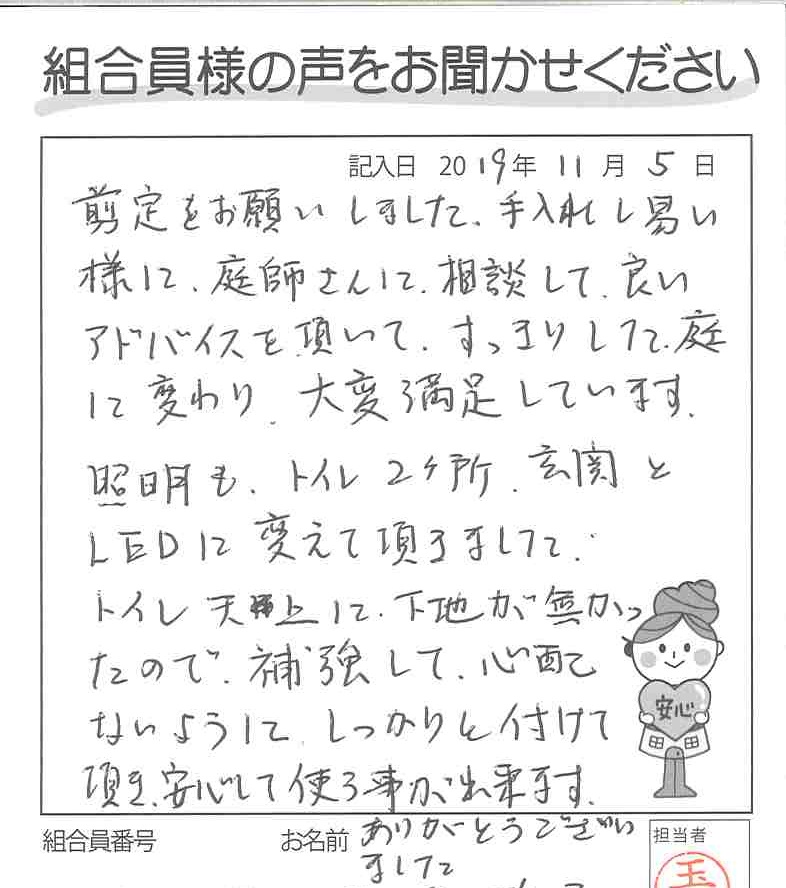 組合員様の声をお聞かせください
記入日 2019年 11月 5日
剪定をお願いしました、手入れし易い
様に、庭師さんに、相談して、良い
アドバイスを頂いて、すっきりした、庭
に変わり、大変満足しています。
照明も、トイレ2ヶ所、玄関と
LEDに変えて頂きました。
トイレ天上に、下地が無かっ
たので、補強して、心配
ないように、しっかりと付けて
頂き、安心して使る事が、出来ます。
安心
組合員番号 お名前 ありがとうござい
ました
担当者
玉